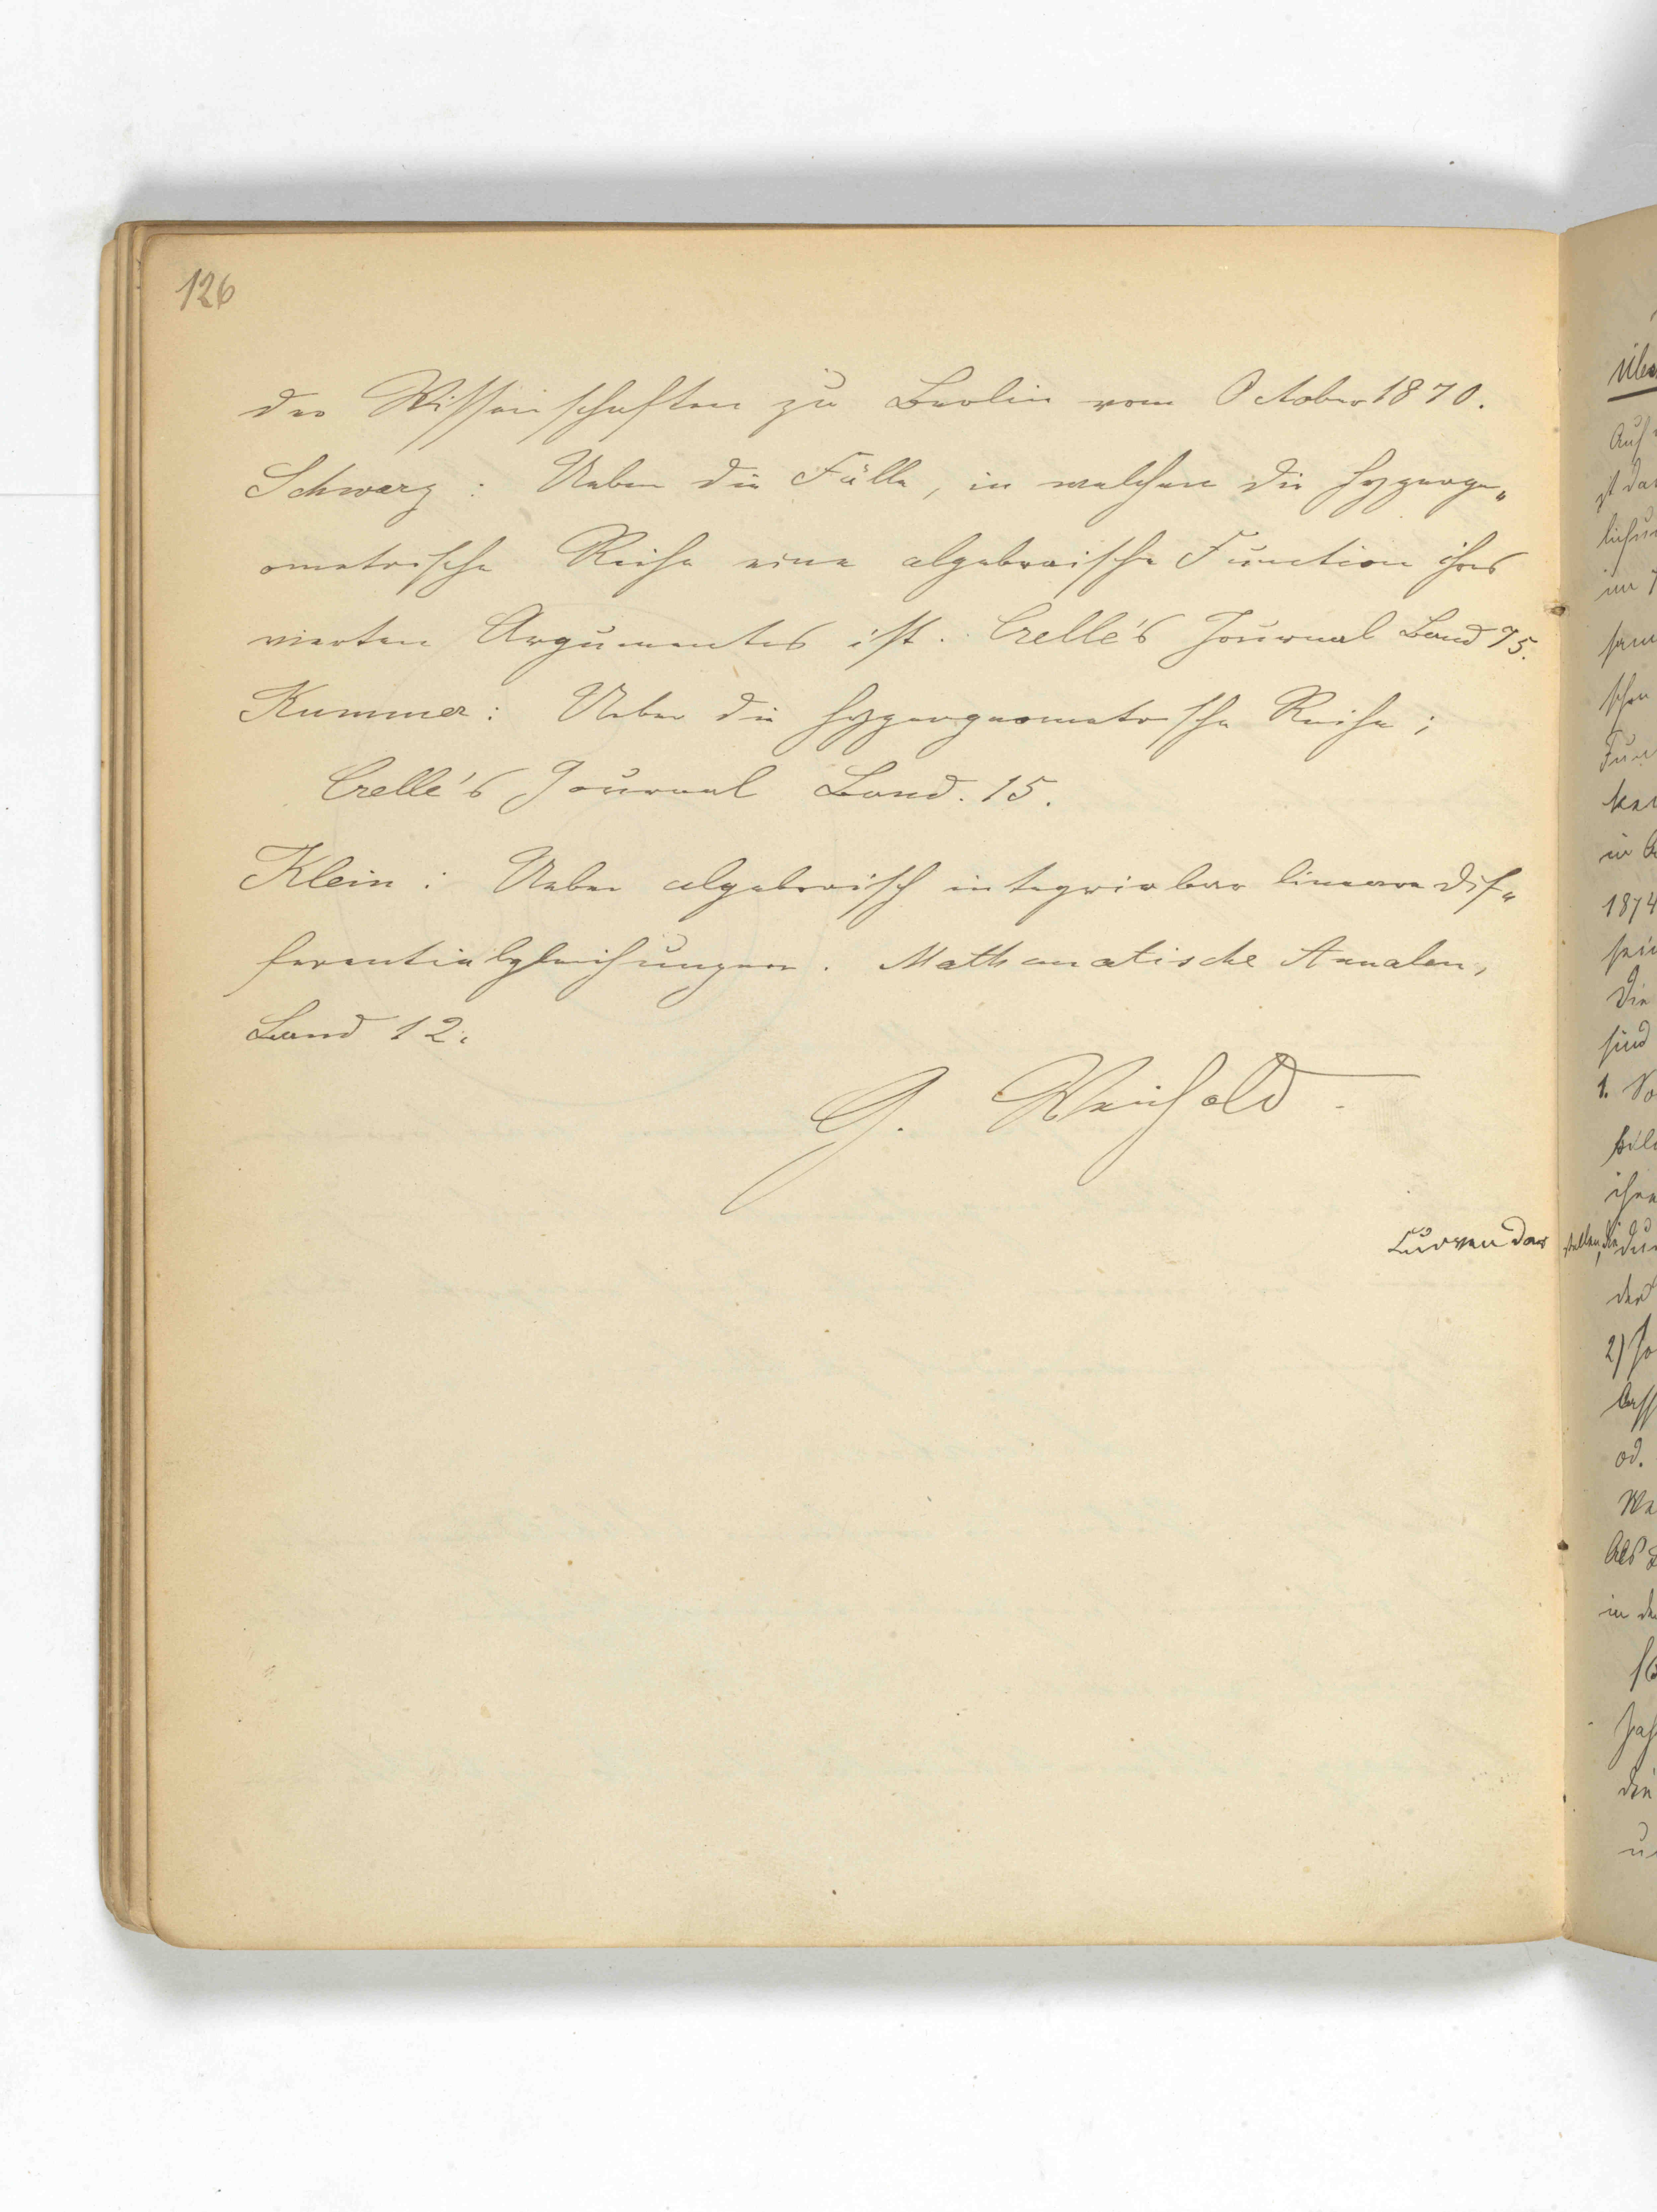 126
der Wissenschaften zu Berlin vom October 1870.
Schwarz: Ueber die Fälle, in welchen die hyperge„
ometrische Reihe eine algebraische Function ihres
vierten Argumentes ist. Crelle's Journal Band 75.
Kummer: Ueber die hypergeometrische Reihe;
Crelle's Journal Band. 15.
Klein: Ueber algebraisch integrirbare lineare Dif„
ferentialgleichungen. Mathematische Annalen,
Band 12.
G. Weichold
Curven dar
stellen, die
Auf
im
schon
in
1874
sein
Die
sind
1.
der
2)
od.
Als
in
die